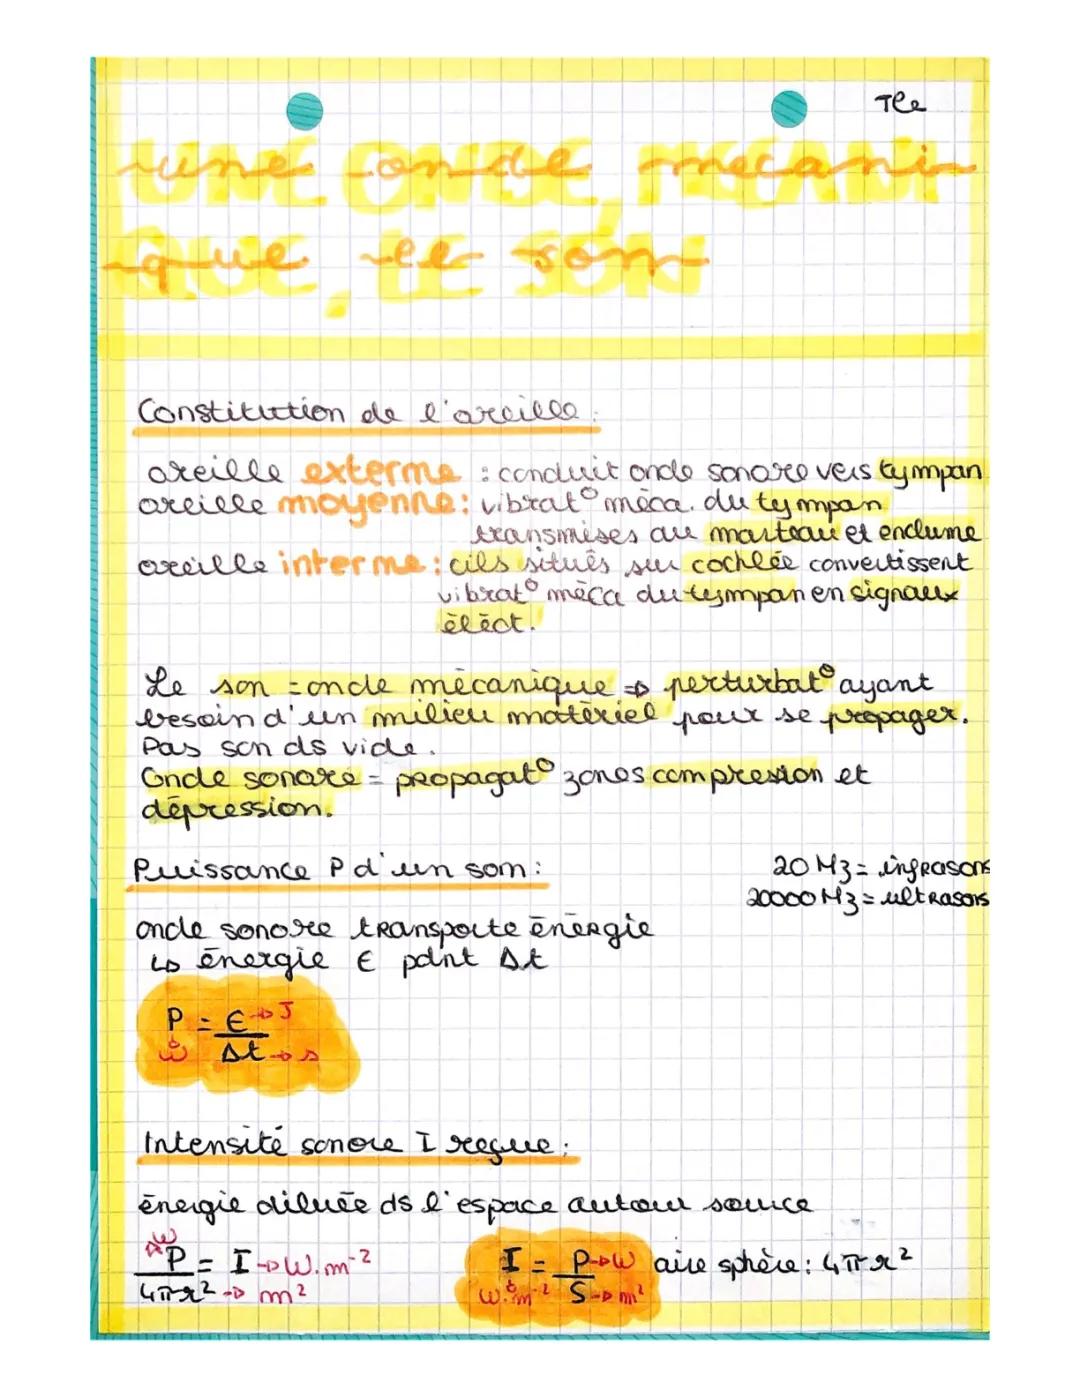 Tle
une onde mécani-
que, le son
Constitution de l'oreille :
oreille externe : conduit onde sonore vers tympan
oreille moyenne : vibrat° méca. du tympan
transmises au marteau et enclume
oreille interne : cils situés sur cochlée convertissent
vibrat° méca du tympan en signaux
élect.
Le son = onde mécanique → perturbat° ayant
besoin d'un milieu matériel pour se propager.
Pas son ds vide.
Onde sonore = propagat° zones compression et
dépression.
Puissance P d'un son :
20 Hz = infrasons
20000 Hz = ultrasons
onde sonore transporte énergie
↳ énergie E pdnt Δt
P = E → J
W Δt → s
Intensité sonore I reçue :
énergie diluée ds l'espace autour source
W
P = I → W.m⁻² I = P → W aire sphère : 4πr²
4πr² → m² W.m⁻² S → m²